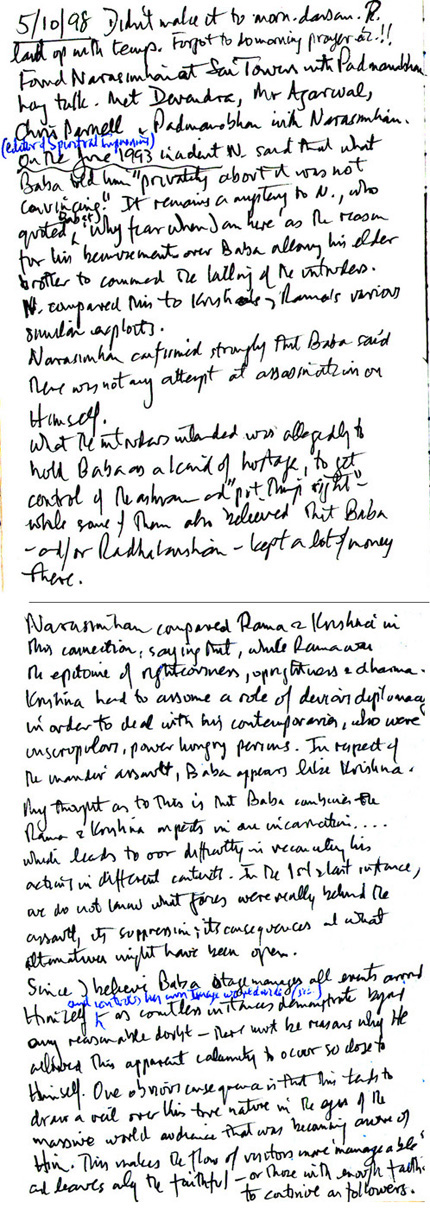 5/10/98 Didn't make it to morn. darsan. R.
laid up with temp. Forgot to do morning prayer etc.!!
Found Narasimhan at Sai Towers with Padmanabhan
long talk. Met Devendra, Mr Agarwal,
Chris Parnell & Padmanabhan with Narasimhan.
(editor of Spiritual Impressions)
On the June 1993 incident N. said that what
Baba told him "privately about it was not
convincing." It remains a mystery to N., who
quoted Baba's 'Why fear when I am here as the reason
for his bemusement over Baba allowing his elder
brother to command the killing of the intruders.
N. compared this to Krishna & Rama's various
similar exploits.
Narasimhan confirmed strongly that Baba said
there was not any attempt at assassination on
Himself.
What the intruders intended was allegedly to
hold Baba as a kind of hostage, to get
control of the ashram and "put things right"-
while some of them also believed that Baba
- and/or Radhakrishnan - kept a lot of money
there.
Narasimhan compared Rama & Krishna in
this connection, saying that, while Rama was
the epitome of righteousness, uprightness & dharma.
Krishna had to assume a role of devious diplomacy
in order to deal with his contemporaries, who were
unscrupulous, power hungry persons. In respect of
the mandir assault, Baba appears like Krishna.
My thought as to this is that Baba combines the
Rama & Krishna aspects in one incarnation....
which leads to our difficulty in reconciling his
actions in different contexts. In the 1st & last instance,
we do not know what forces were really behind the
assault, its suppression, its consequences and what
alternatives might have been open.
Since I believe Baba stage manages all events around
and controls his own image worldwide (sic)
Himself as countless instances demonstrate beyond
any reasonable doubt - there must be reasons why He
allowed this apparent calamity to occur so close to
Himself. One obvious consequence is that this tends to
draw a veil over His true nature in the eyes of the
massive world audience that was becoming aware of
Him. This makes the flow of visitors more 'manageable'
and leaves only the faithful - or those with enough faith
to continue as followers.